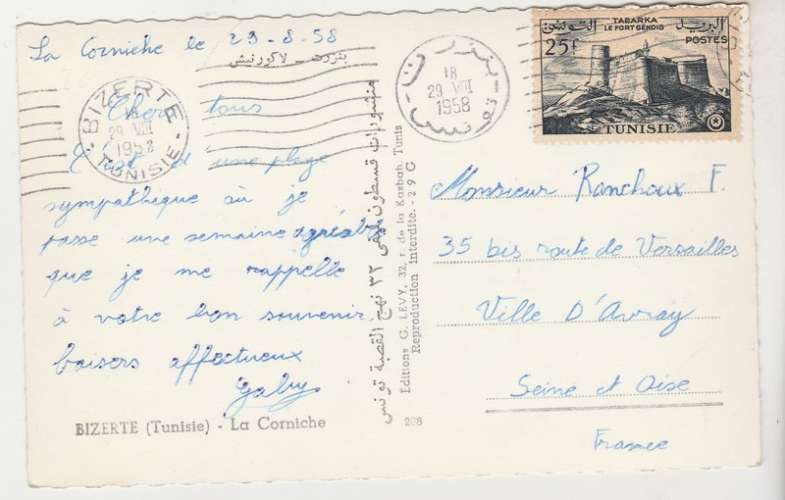 La Corniche le 29-8-58
بنزرت - لاكورنيش
BIZERTE
18
29 VIII
1958
TUNISIE
Chers tous
C'est d'une plage
sympathique où je
passe une semaine agréable
que je me rappelle
à votre bon souvenir
baisers affectueux
Gaby
BIZERTE (Tunisie) - La Corniche
منشورات قسطون ليفي ٣٢ نهج القصبة تونس
Éditions G. LEVY, 32, r. de la Kasbah, Tunis
Reproduction interdite. - 29 G
208
بنزرت
18
29 VIII
1958
تونس
البريد التونسي
TABARKA
LE FORT GENOIS
25f
POSTES
TUNISIE
Monsieur Ranchoux F.
35 bis route de Versailles
Ville D'Avray
Seine et Oise
France